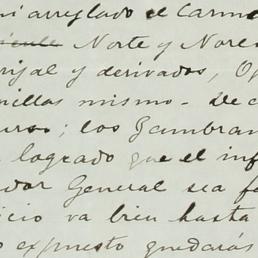 ni arreglado el Carme
Norte y Nore
rijal y derivados, Op
nillas mismo. De c
urso; los Zambran
logrado que el inf
dor General sea f
icio va bien hasta
o expuesto quedarás